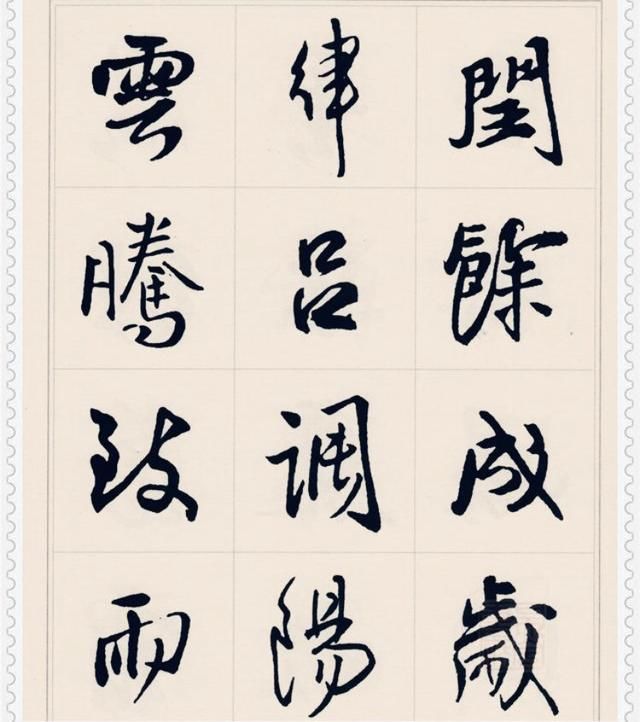 閏餘成歲
律吕調陽
雲騰致雨